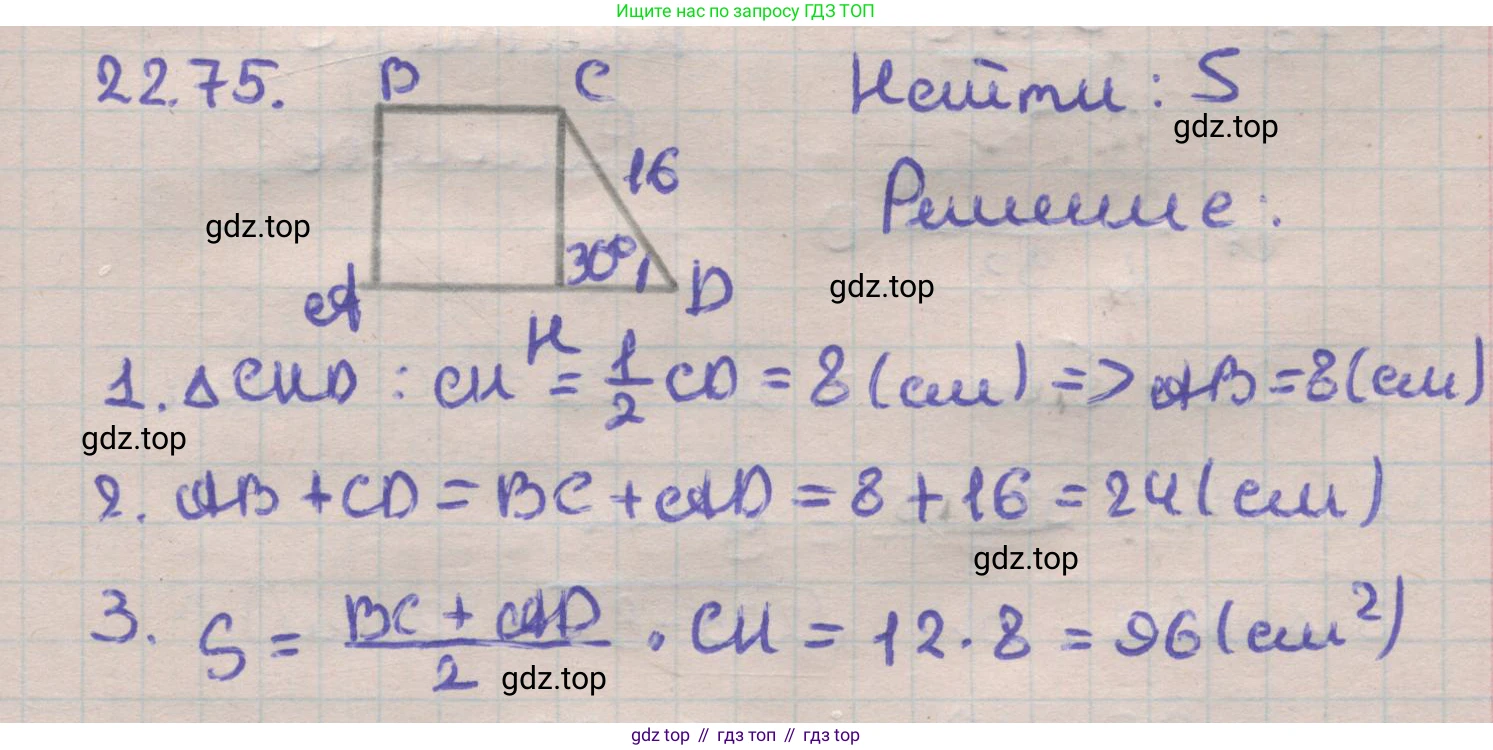 Ищите нас по запросу ГДЗ ТОП
22.75.
B C
16
30°
A H D
Найти: S
gdz.top
Решение:
gdz.top
gdz.top
1. Δ CHD : CH = 1/2 CD = 8 (см) => AB = 8 (см)
gdz.top
2. AB + CD = BC + AD = 8 + 16 = 24 (см)
gdz.top
3. S = (BC + AD)/2 · CH = 12 · 8 = 96 (см²)
gdz.top
gdz top // гдз топ // гдз top